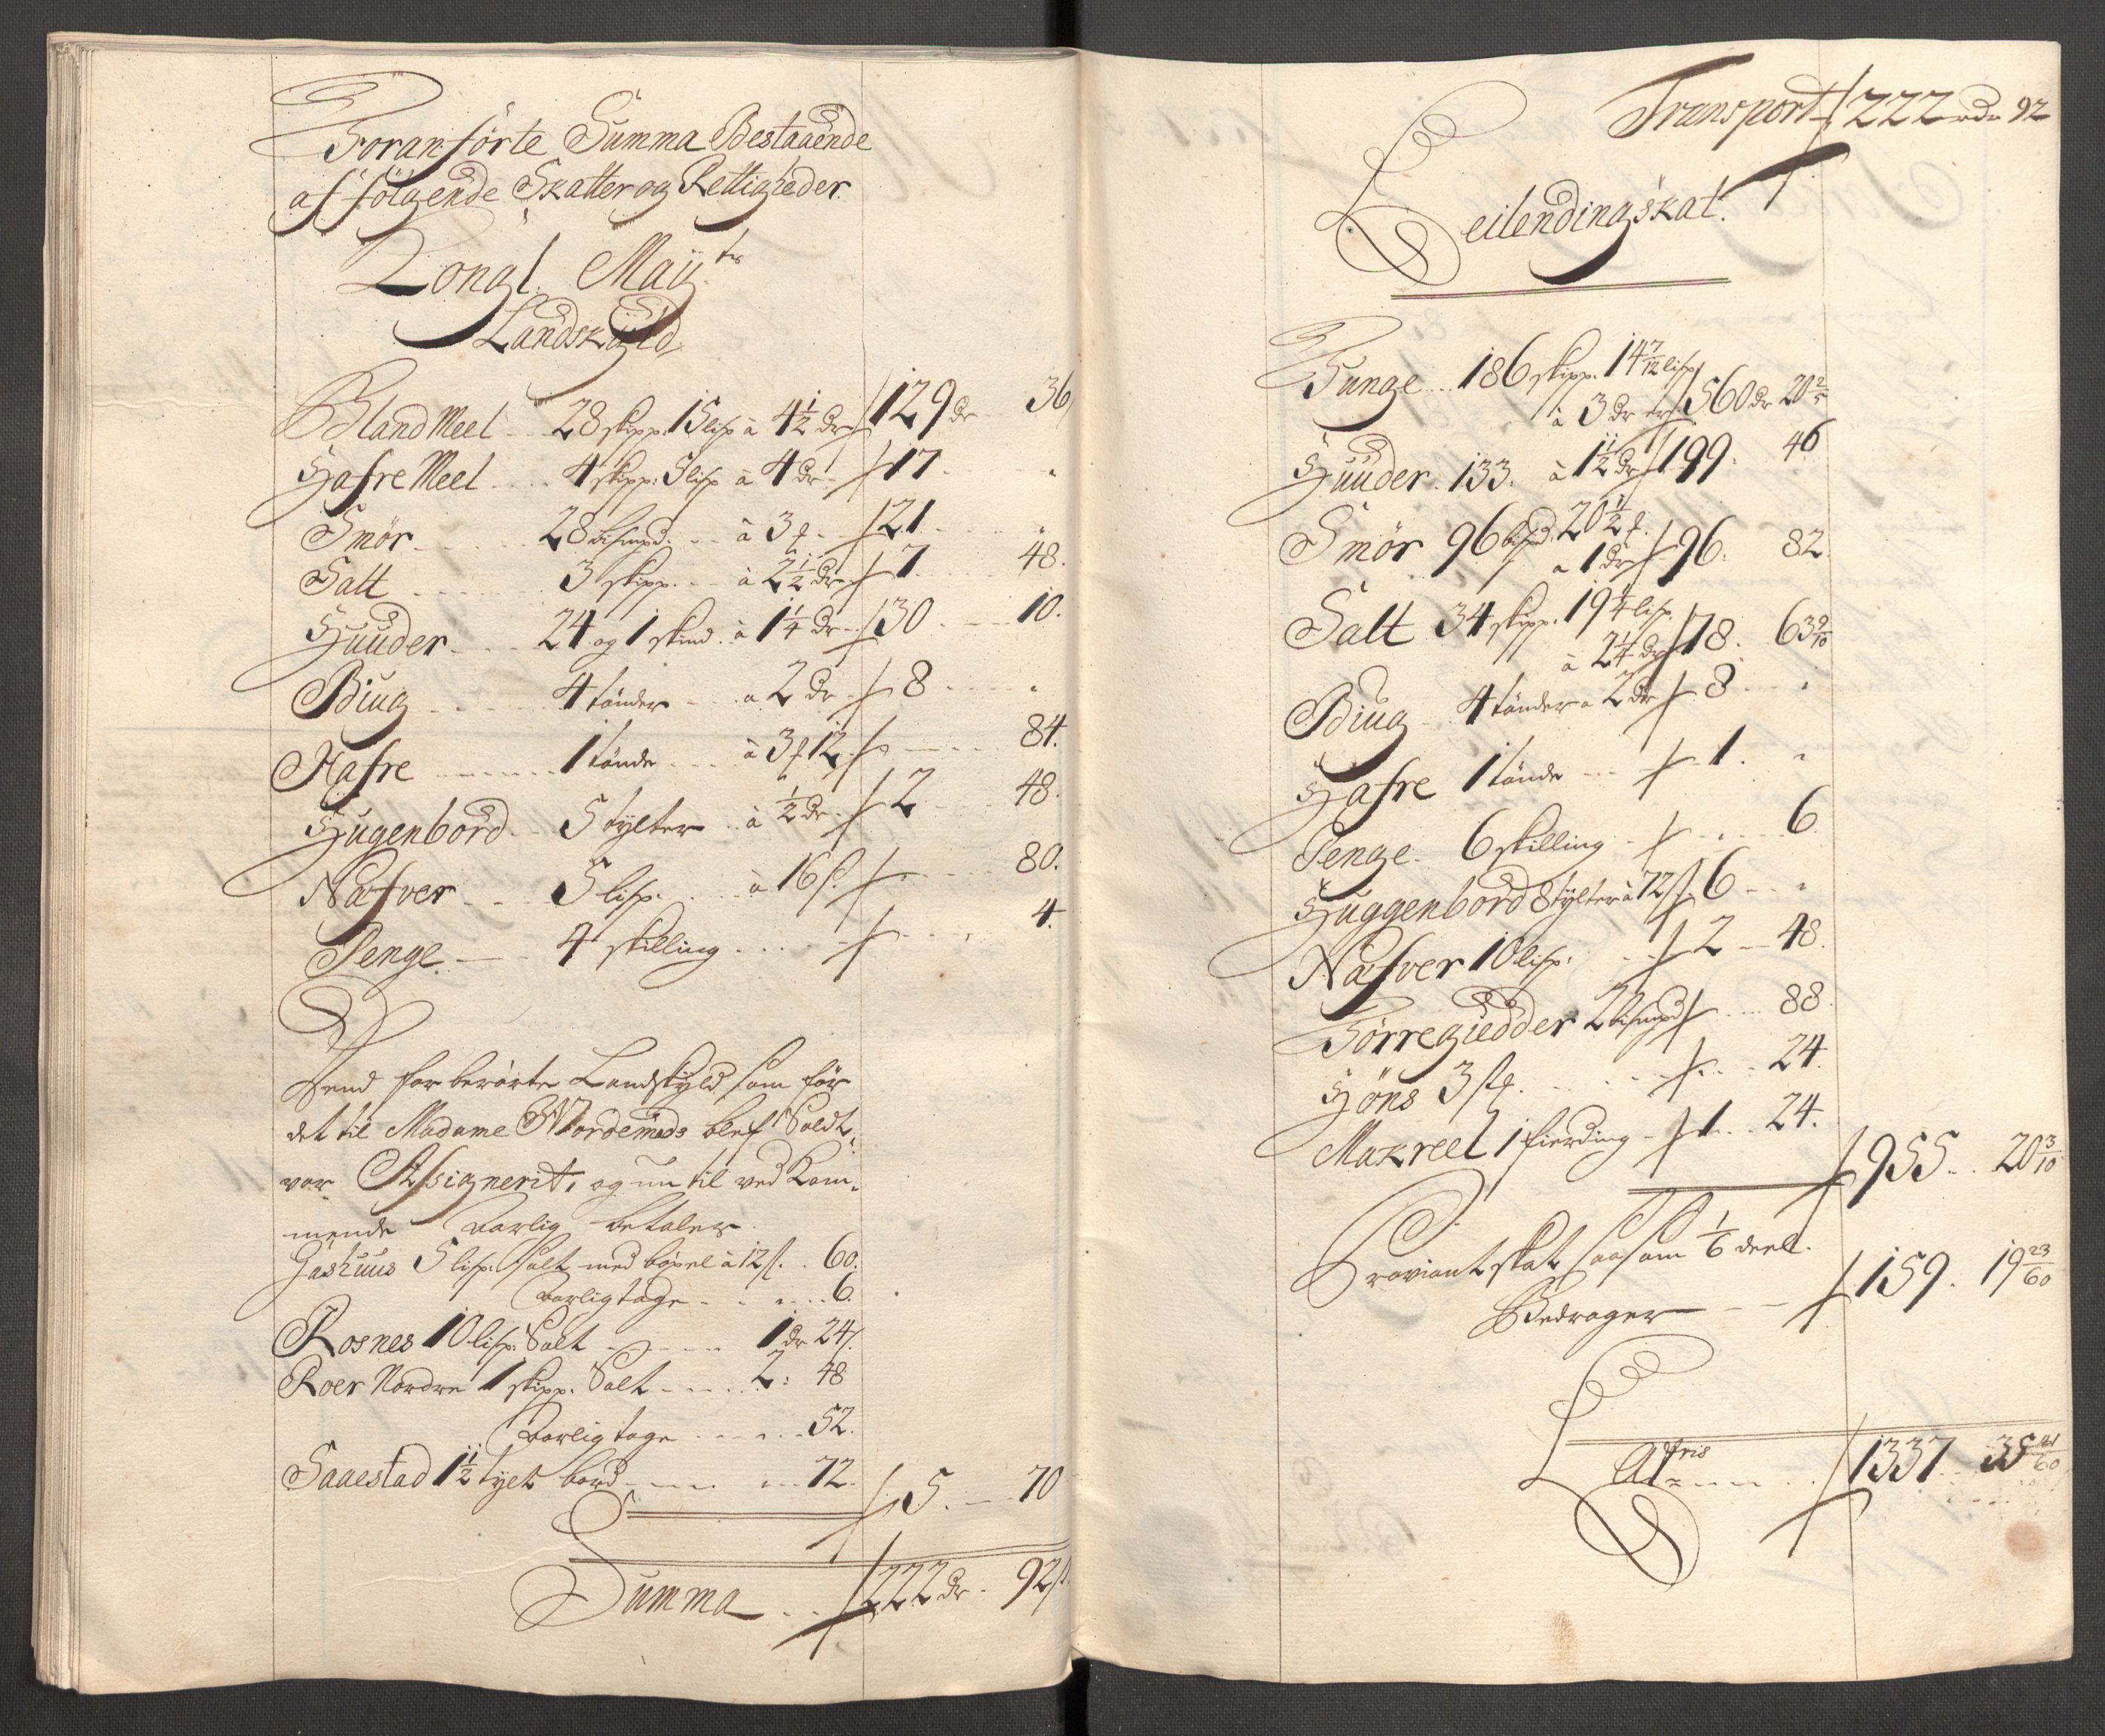 Foranførte Summa Bestaaende
af følgende Skatter og Rettigheder.
Kongl. Maÿ.ts
Landskÿld,
Bland Meel 28 skipp: 15 lisp à 4½ dr 129 dr 36
Hafre Meel 4 skipp: 5 lisp à 4 dr 17. "
Smør 28 bismpd. à 3 21 "
Salt 3 skipp. à 2½ dr 7 48.
Huuder 24 og 1 skind à 1¼ dr 30 10.
Biug 4 tønder a 2 dr 8 "
Hafre 1 tønde à 3 12 84.
Hugenbord 5 tylter à ½ dr 2 48.
Næfver 5 lisp. à 16 s. 80.
Penge 4 skilling 4.
Hend forberørte Landskyld, som før
det til Madame Wordemeds blef Soldt,
var Assignerit, og nu til ved Kom-
mende aarlig betaler.
Gashuus 5 lisp. Salt med bøxel à 12 s. 60.
aarlig tage 6.
Rosnes 10 lisp. Salt 1 dr 24.
Roer Nordre 1 skipp. Salt 2: 48
aarlig tage 52.
Saaestad 1½ tylt bord 72.
5. 70
Summa 222 dr. 92 s.
Transport 222 rdr 92
Leilendingskat.
Tunge 186 skipp. 14 7/12 lisp
à 3 dr er 560 dr 20 2/5
Huuder 133. à 1½ dr 199. 46
Smør 96 bispd. 20½
a 1 dr 96. 82
Salt 34 skipp. 19¼ lisp.
à 2¼ dr 78. 63 9/10
Biug 4 tønder a 2 dr 8 "
Hafre 1 tønde 1. "
Penge 6 skilling " 6
Huggenbord 8 tylter à 72 s. 6 "
Næfver 10 lisp. 2 48.
Tørregiedder 2 bismpd 88
Høns 3 st. 24
Makreel 1 fierding 1 24.
955 20 3/10
Proviantskat saasom 1/6 deel.
Bedrager 159. 19 23/60
Lateris 1337 35 41/60